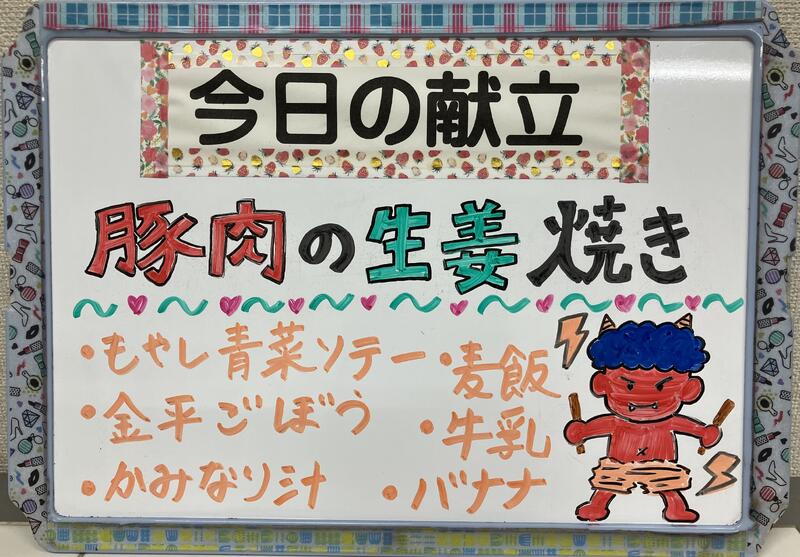 今日の献立
豚肉の生姜焼き
・もやし青菜ソテー
・金平ごぼう
・かみなり汁
・麦飯
・牛乳
・バナナ